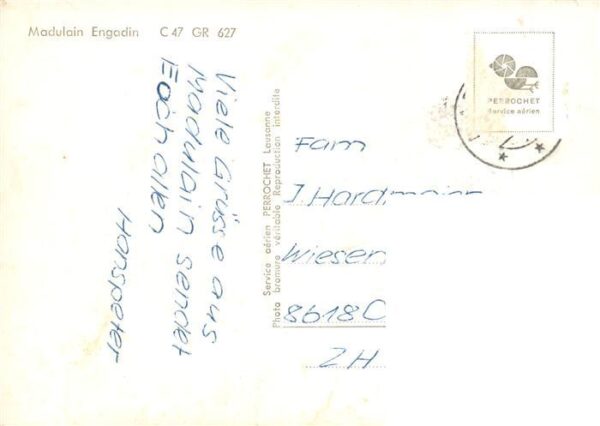 Madulain Engadin C 47 GR 627
Viele Grüsse aus
Madulain sendet
Euch allen
Hanspeter
Service aérien PERROCHET Lausanne
Photo bromure véritable Reproduction interdite
PERROCHET
Service aérien
Fam
J. Hardmeier
Wiesen
8618 O
ZH